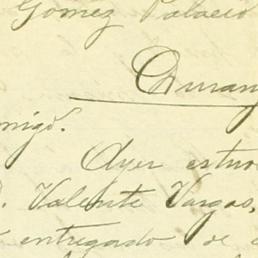 Gómez Palacio
Duran
migo.
Ayer estuv
D. Valente Vargas,
entregado de